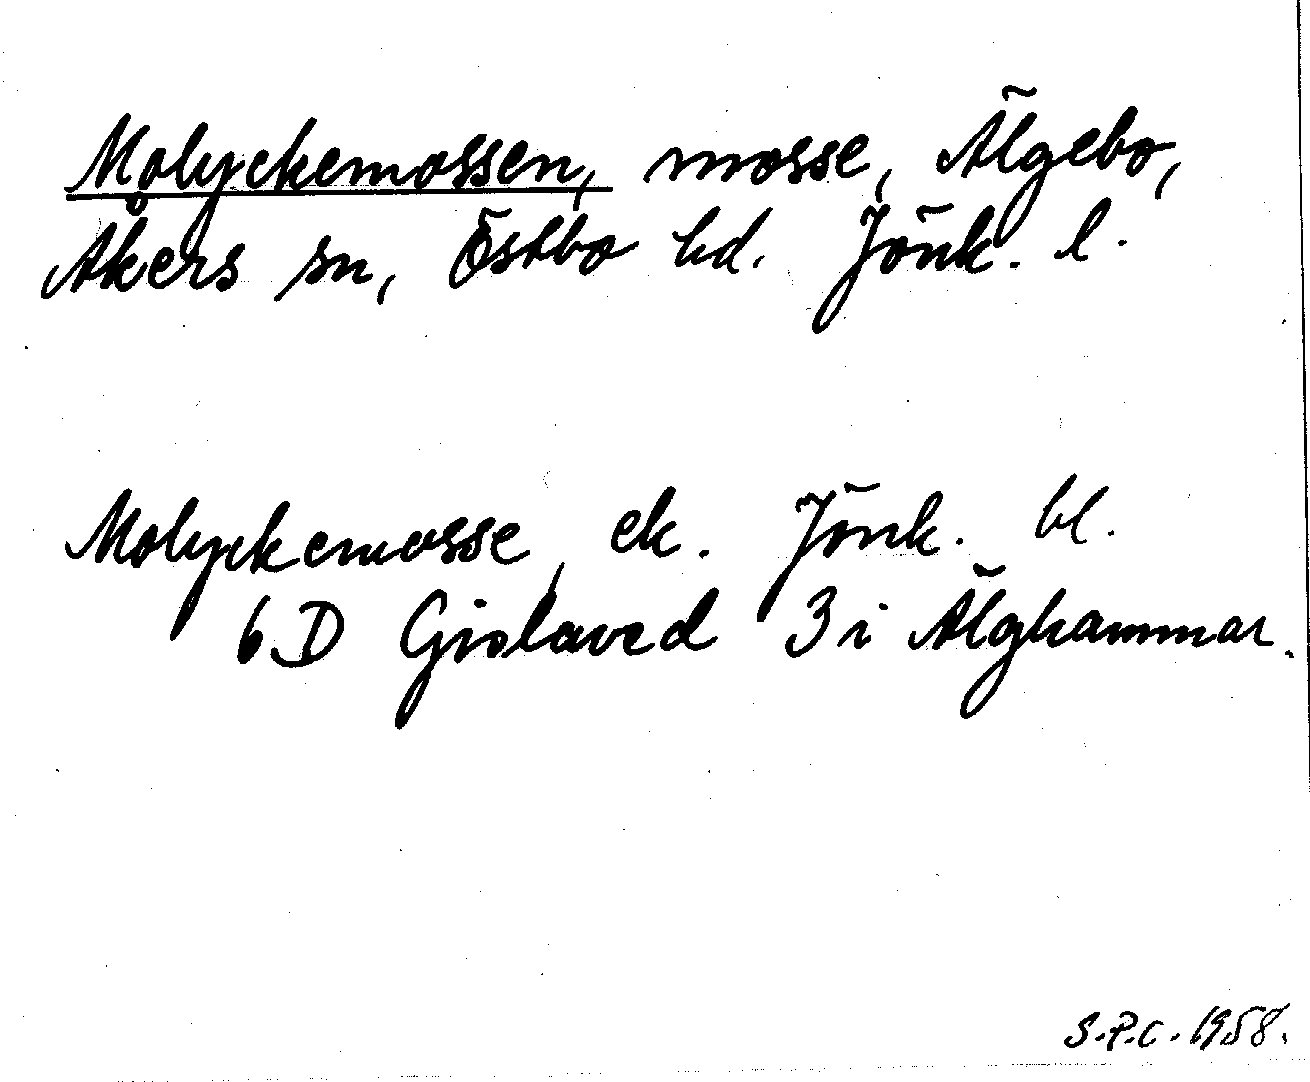 Molyckemossen, mosse, Älgebo,
Åkers sn, Östbo hd. Jönk. l.
Molyckemosse, ek. Jönk. bl.
6D Gislaved 3i Älghammar.
S.P.C. 1958.